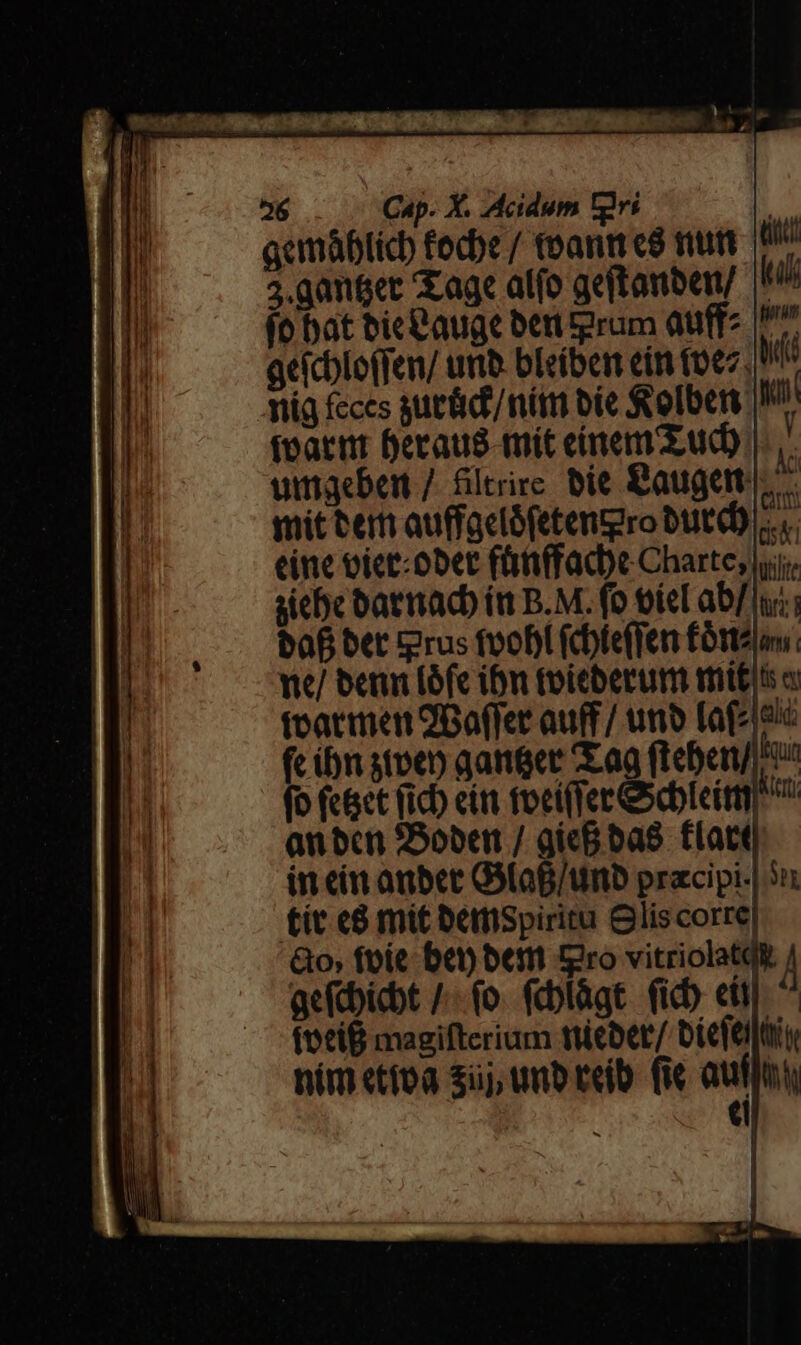 26 Cap. X. Acidum 🜿ri
gemåhlich koche / wann es nun
3. gantzer Tage alſo geſtanden/
ſo hat die Lauge den 🜿rum auff⸗
geſchloſſen/ und bleiben ein we⸗
nig feces zurůck/ nim die Kolben
warm heraus mit einem Tuch
umgeben / filtrire die Laugen
mit dem auffgelöſeten 🜿ro durch
eine vier⸗oder fůnffache Charte,
ziehe darnach in B.M. ſo viel ab/
daß der 🜿rus wohl ſchieſſen kön⸗
ne/ denn löſe ihn wiederum mit
warmen Waſſer auff / und laſ⸗
ſe ihn zwey gantzer Tag ſtehen/
ſo ſetzet ſich ein weiſſer Schleim
an den Boden / gieß das klare
in ein ander Glaß/ und præcipi-
tir es mit dem Spiritu 🜔lis corre
cto, wie bey dem 🜿ro vitriolato
geſchicht / ſo ſchlågt ſich ein
weiß magiſterium nieder/ dieſe
nim etwa ʒiij, und reib ſie auf
ei